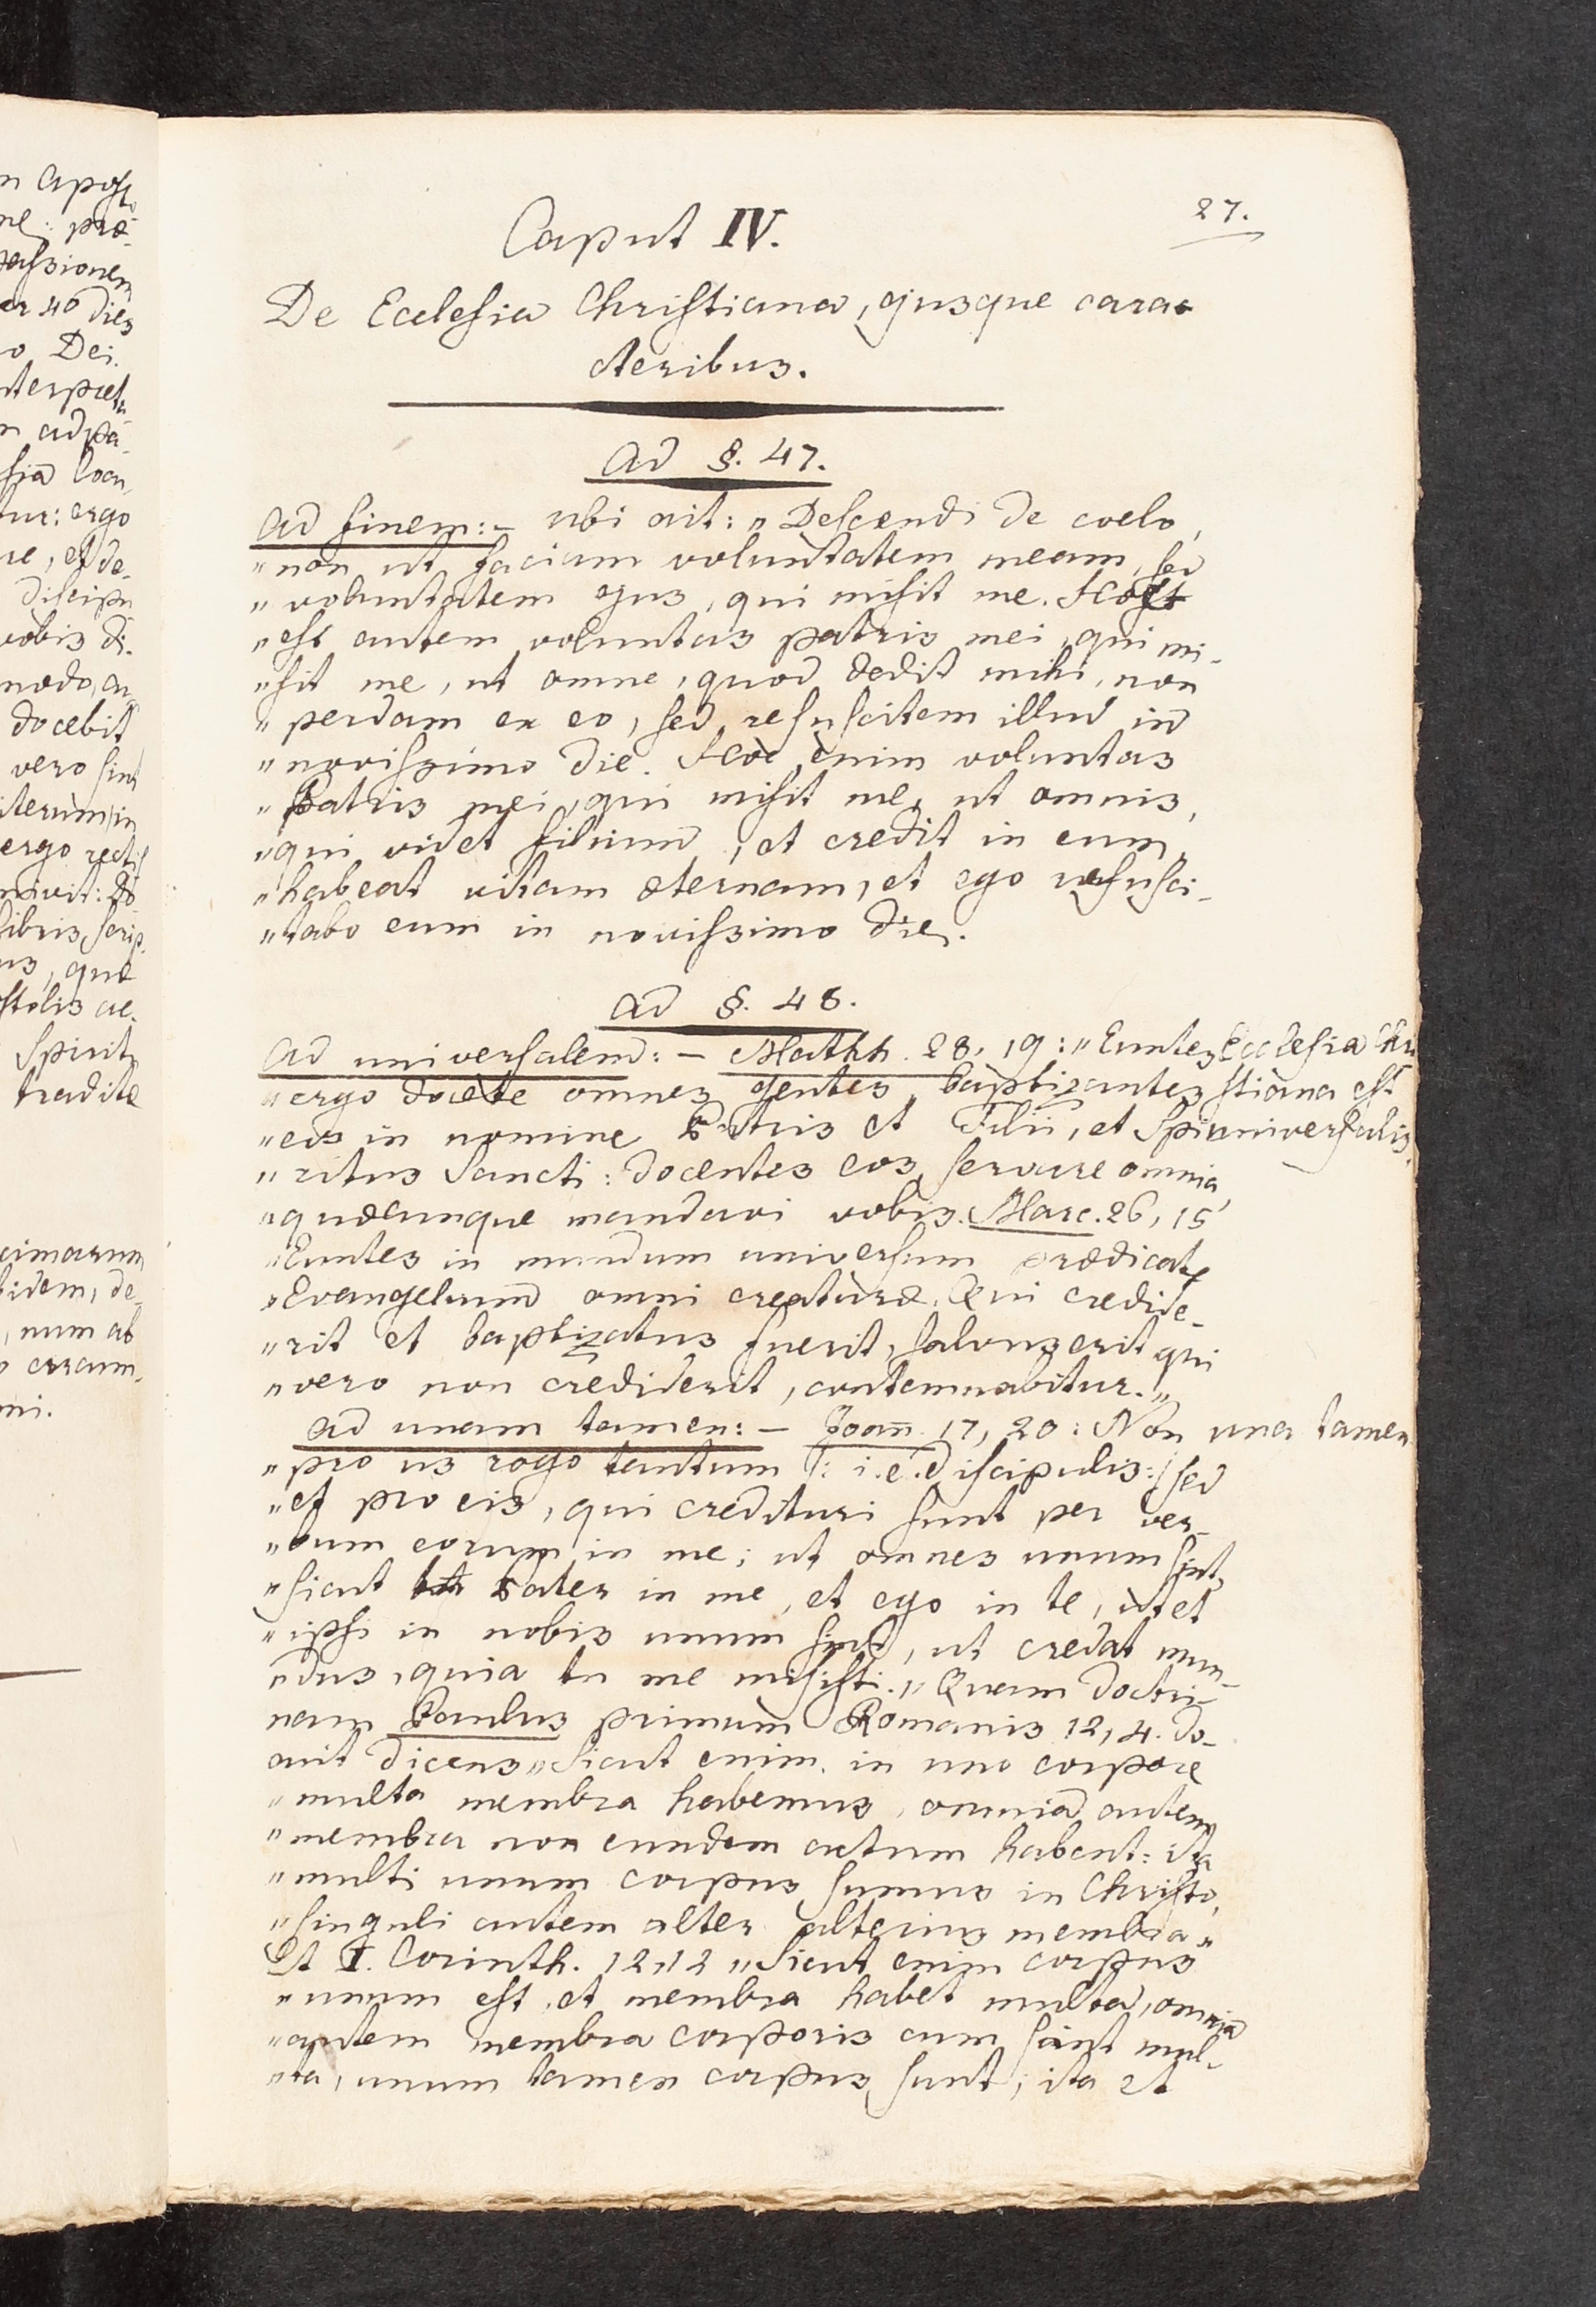 n Apost
ne: præ-
passionem
er 40 dies
o Dei.
nterpret
n ad pa-
siã locu
tur: ergo
re, et de-
discipu
vobis di-
modo, cu
docebit
vero sint
iterum, in
ergo recti
nivit: do
libris, scrip
us, quæ
stolis ac-
Spirit
tradite
cimarum
ibidem, de-
, num ab
o errarum
ni.
27.
Caput IV.
De Ecclesia Christiana, ejusque cara-
cteribus.
Ad §. 47.
Ad finem: - ubi ait: „Descendi de coelo,
„non ut faciam voluntatem meam, sed
„voluntatem ejus, qui misit me. Hoc
„est autem voluntas patris mei, qui mi-
„sit me, ut omne, quod dedit mihi, non
„perdam ex eo, sed resuscitem illud in
„novissimo die. Hoc enim voluntas
„Patris mei, qui misit me, ut omnis,
„qui videt filium, et credit in eum,
„habeat vitam æternam, et ego resusci-
„tabo eum in novissimo die.
Ad §. 48.
Ad universalem: - Matth. 28, 19: „Euntes
„ergo docete omnes gentes, baptizantes
„eos in nomine Patris et Filii, et Spi-
„ritus Sancti: docentes eos servare omnia,
„quæcunque mandavi vobis. Marc. 26, 15
„Euntes in mundum universum prædicate
„Evangelium omni creaturæ. Qui credide-
„rit et baptizatus fuerit, salvus erit qui
„vero non crediderit, contemnabitur.„
Ecclesia Chri
stiana est
universalis.
Ad unam tamen: - Joañ. 17, 20: Non
„pro iis rogo tantum /: i.e. discipulis:/ sed
„et pro eis, qui credituri sunt per ver-
„bum eorum in me; ut omnes unum sint,
„sicut Pater in me, et ego in te, ut et
„ipsi in nobis unum sint, ut credat mun-
„dus, quia tu me misisti.„ Quam doctri-
nam Paulus primum Romanis 12, 4. do-
cuit dicens „Sicut enim in uno corpore
„multa membra habemus, omnia autem
„membra non eundem actum habent: ita
„multi unum corpus sumus in Christo,
„singuli autem alter alterius membra„
Et I. Corinth. 12,12 „Sicut enim corpus
„unum est, et membra habet multa, omnia
„autem membra corporis cum sint mul-
„ta, unum tamen corpus sunt; ita et
una tamen